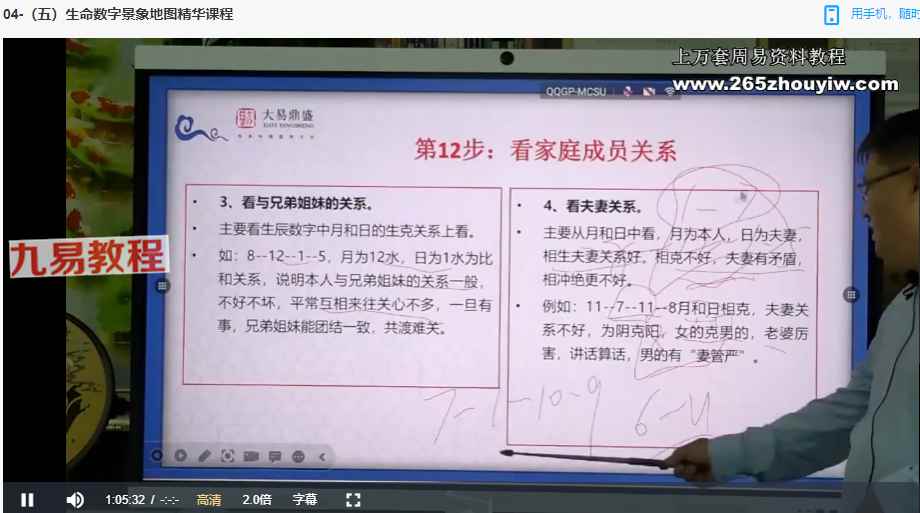 04-（五）生命数字景象地图精华课程
用手机，随时
上万套周易资料教程
www.265zhouyiw.com
QQGP-MCSU
大易鼎盛
第12步：看家庭成员关系
3、看与兄弟姐妹的关系。
主要看生辰数字中月和日的生克关系上看。
如：8--12--1--5，月为12水，日为1水为比
和关系，说明本人与兄弟姐妹的关系一般，
不好不坏，平常互相来往关心不多，一旦有
事，兄弟姐妹能团结一致，共渡难关。
4、看夫妻关系。
主要从月和日中看，月为本人，日为夫妻，
相生夫妻关系好，相克不好，夫妻有矛盾，
相冲绝更不好。
例如：11--7--11--8月和日相克，夫妻关
系不好，为阴克阳，女的克男的，老婆厉
害，讲话算话，男的有“妻管严”。
九易教程
7-1-10-9
1:05:32 / -:-:-
高清
2.0倍
字幕